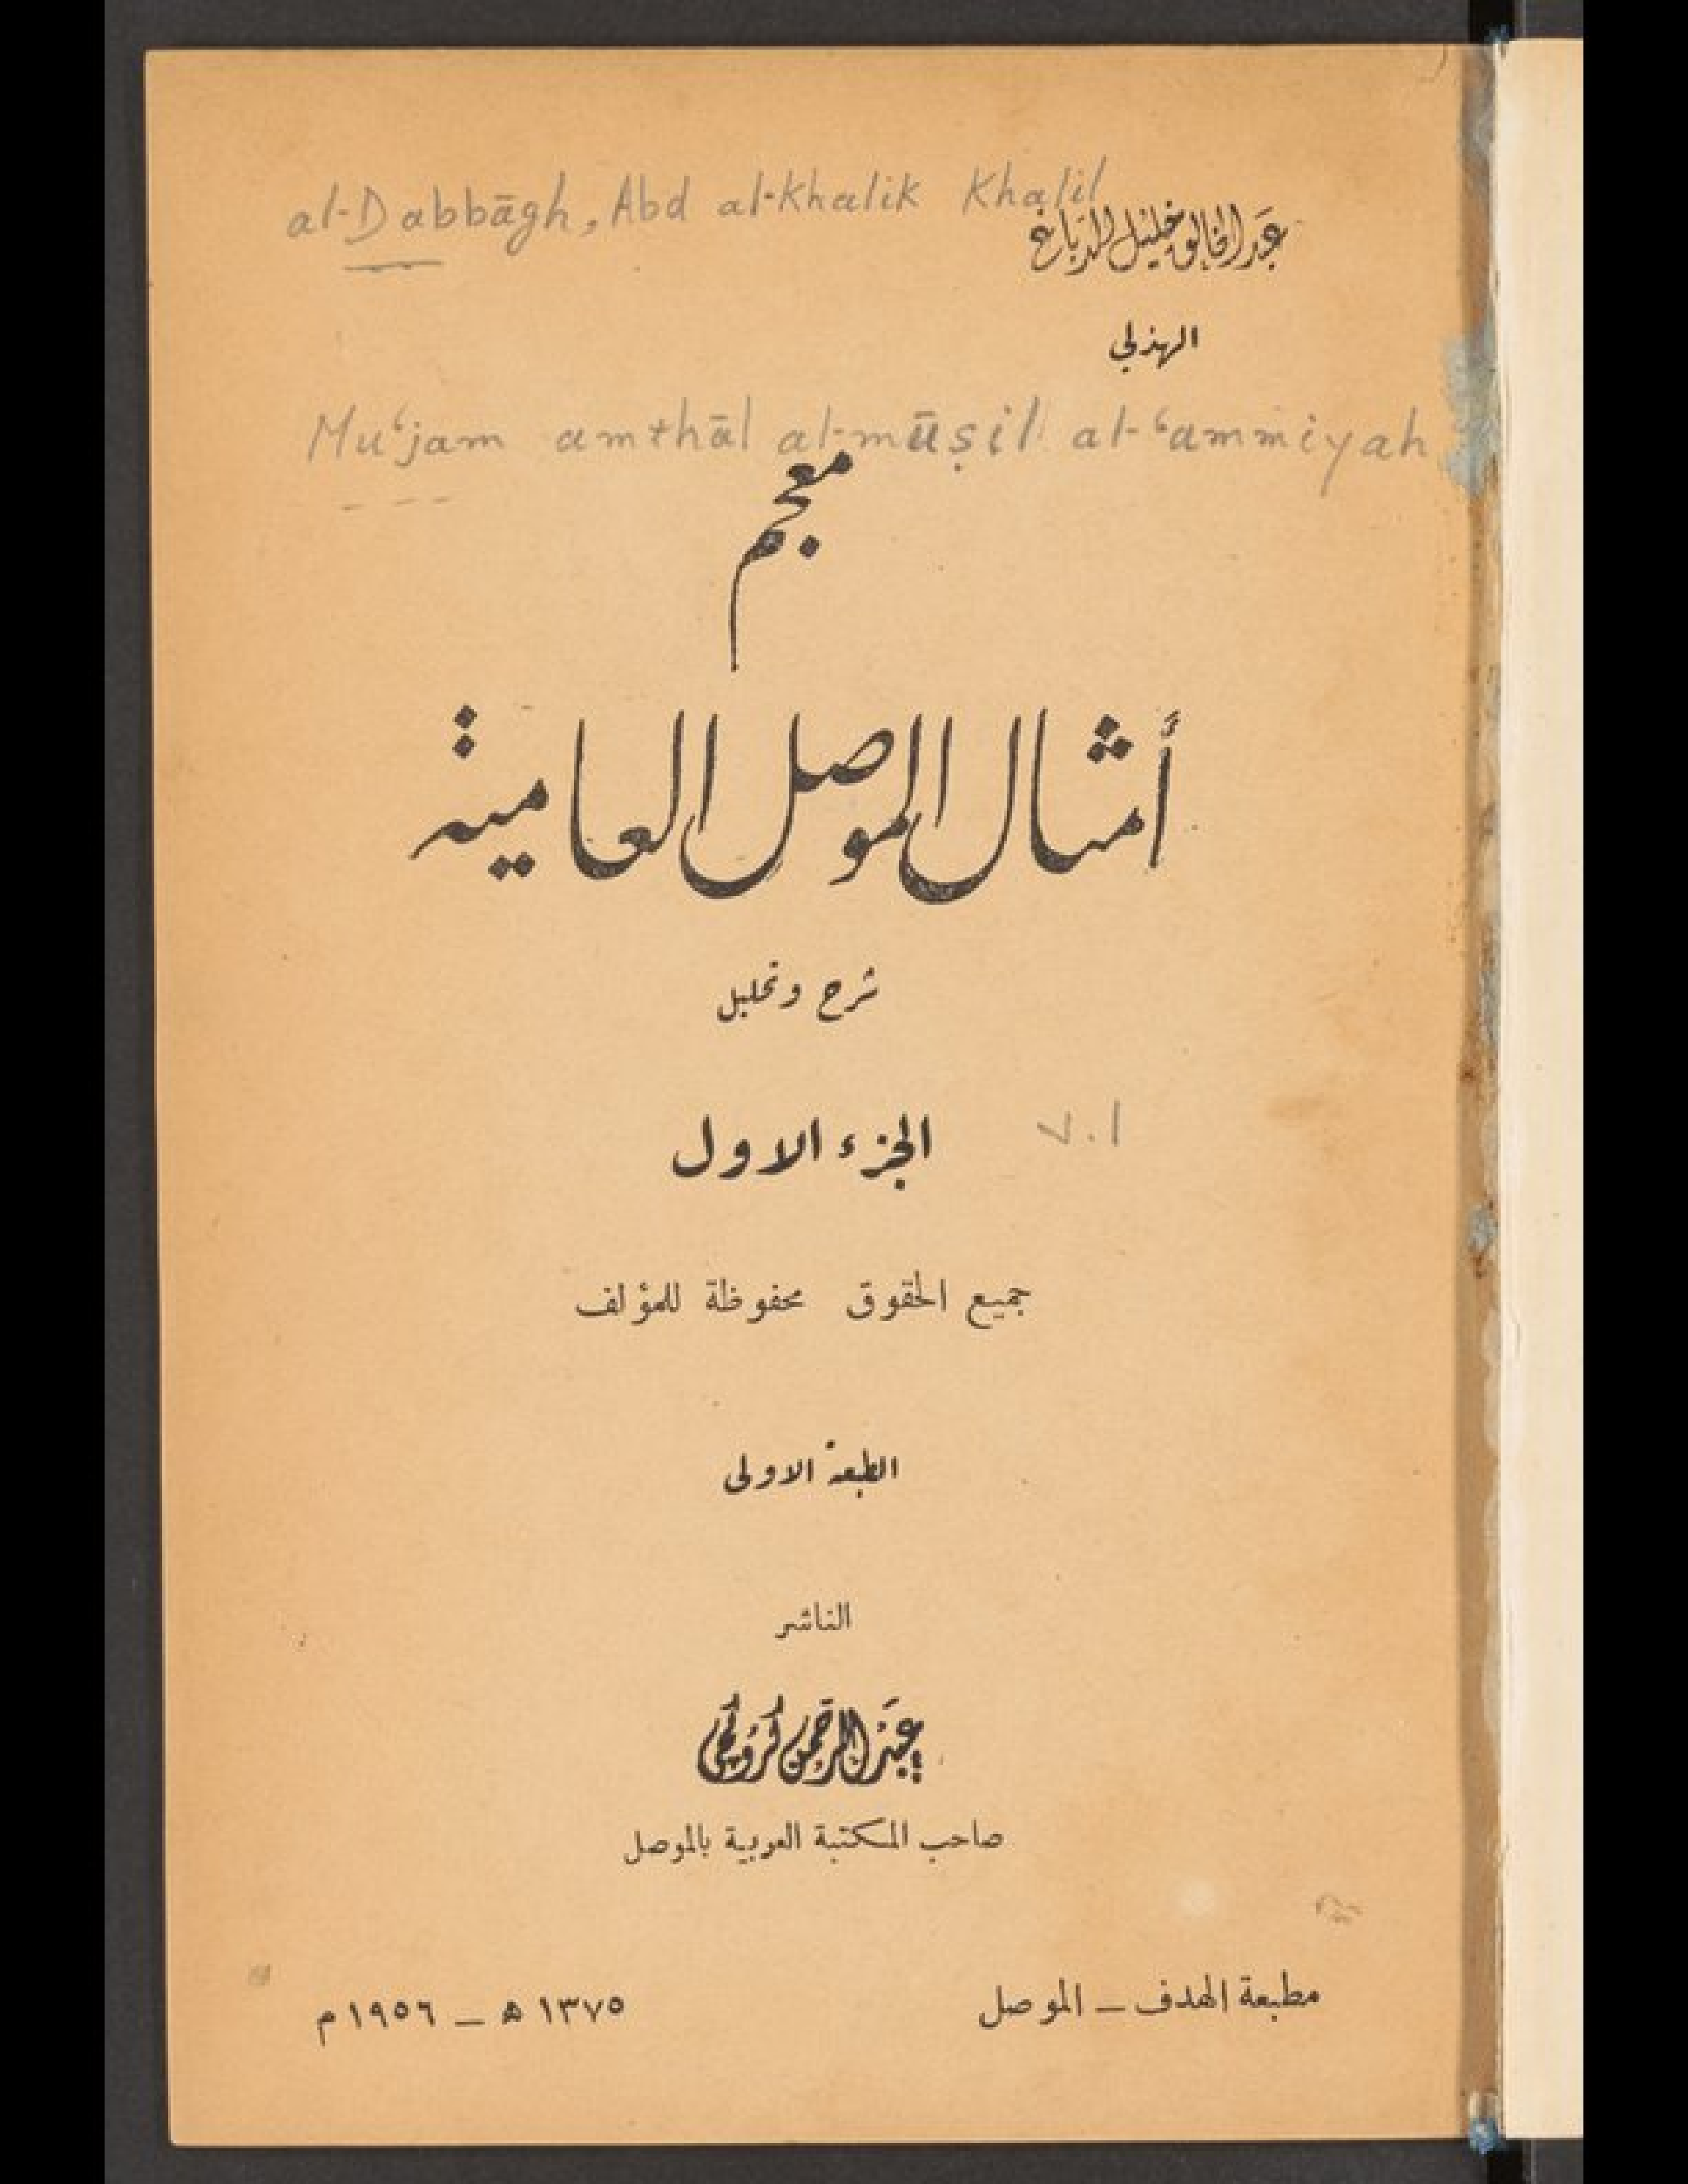 al-Dabbāgh, Abd al-Khalik Khalil
عبد الخالق خليل الدباغ
الهذلي
Mu‘jam amthāl al-mūṣil al-‘ammiyah
معجم
أمثال الموصل العامية
شرح وتحليل
الجزء الاول
v.1
جميع الحقوق محفوظة للمؤلف
الطبعة الاولى
الناشر
عبد الرحمن
صاحب المكتبة العربية بالموصل
مطبعة الهدف ــ الموصل
١٣٧٥ هـ ــ ١٩٥٦ م